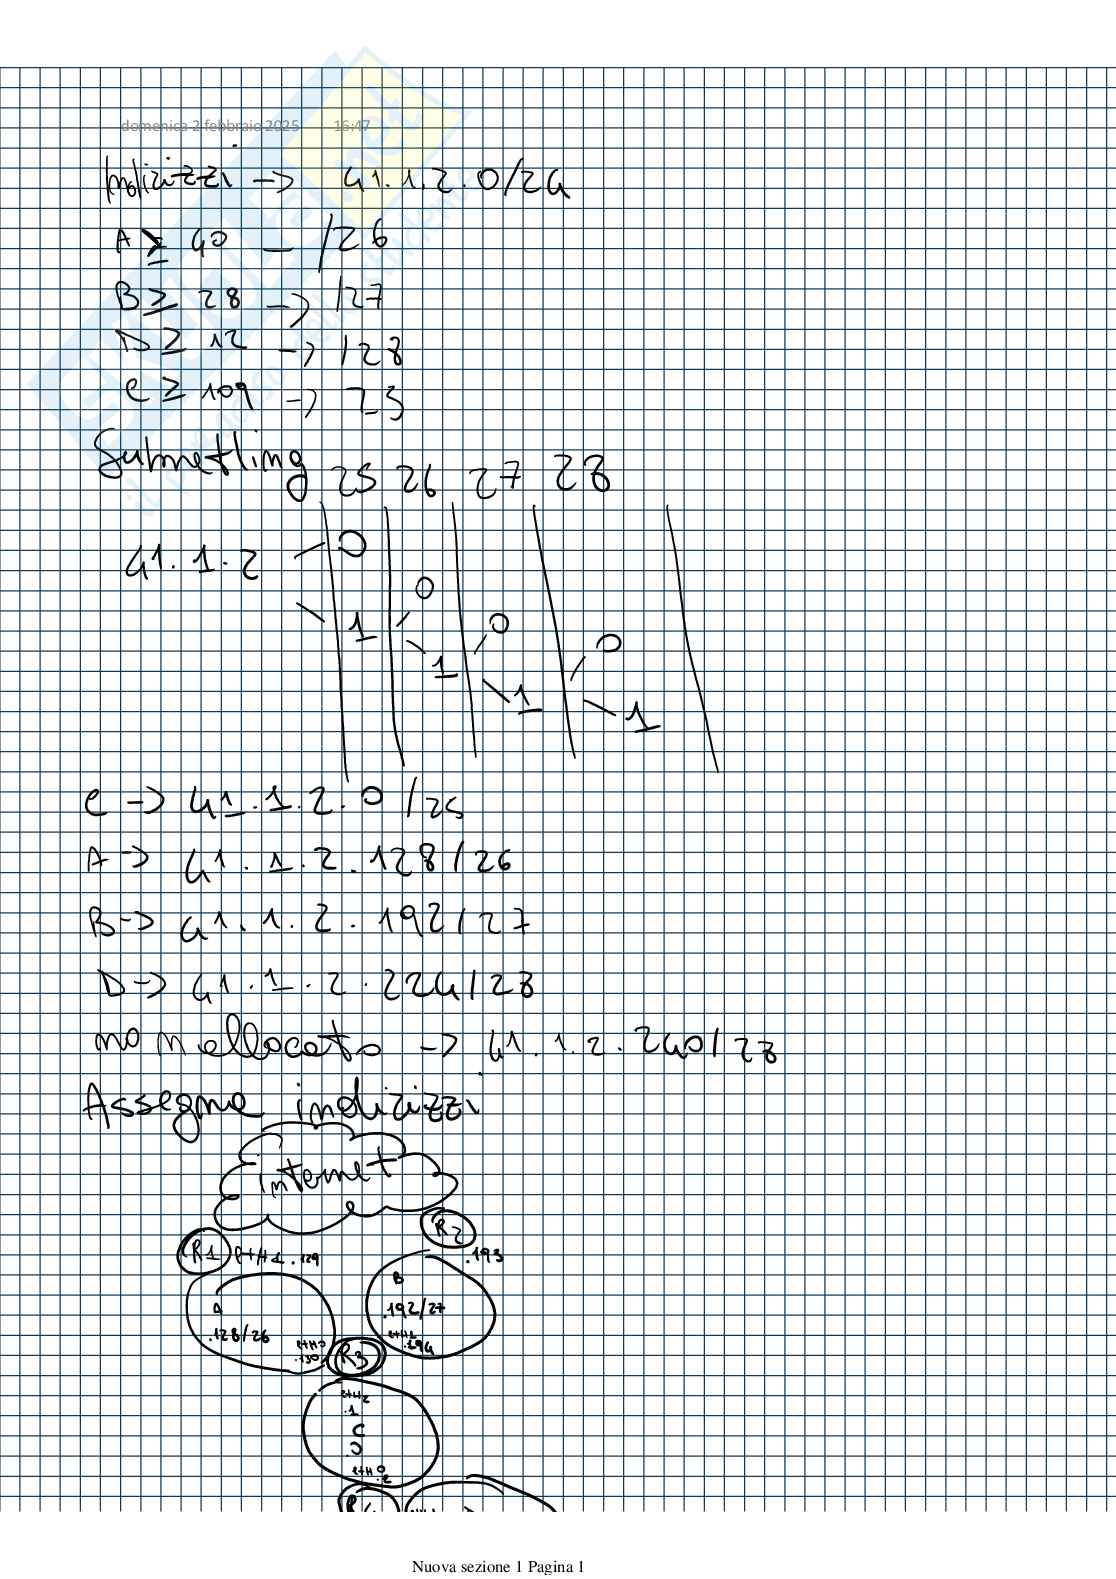 domenica 2 febbraio 2025 16:47
Indirizzi -> 41.1.2.0/24
A ≥ 40 — /26
B ≥ 28 -> /27
D ≥ 12 -> /28
C ≥ 109 -> 25
Submetling 25 26 27 28
0
41.1.2
0
1 0
1 0
1
1
C -> 41.1.2.0/25
A -> 41.1.2.128/26
B -> 41.1.2.192/27
D -> 41.1.2.224/28
non allocato -> 41.1.2.240/28
Assegna indirizzi
internet
R2
R1 etH1 .129 .193
B
A .192/27
.128/26 etH0 etH1
.130 R3 .194
etH2
.1
C
etH0
.2
Nuova sezione 1 Pagina 1